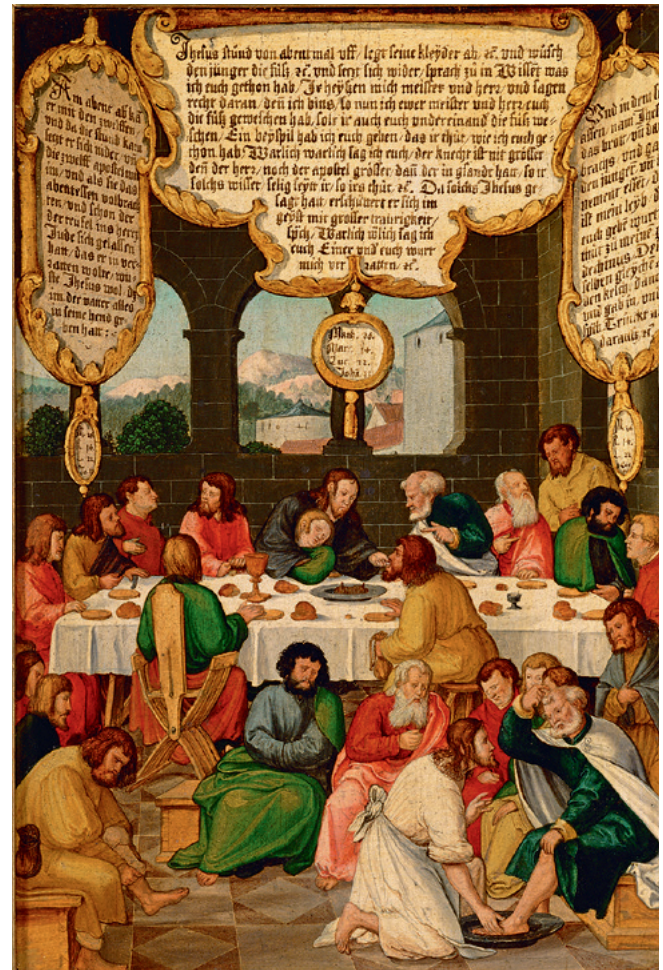 Am abent als kā
er mit den zwelffen,
vnd da die stund kam
setzt er sich nider, vñ
die zwelff apostel mit
im, vnd als sie das
abentessen volbrach
ten, vnd schon der
der teufel ins hertz
Jude sich gelassen
hatt, das er in ver
ratten wolte, wu
ste Jhesus wol, dz
im der vatter alles
in seine hend ge
ben hatt :
Jhesus stůnd von abentmal vff, legt seine kleyder ab, ⁊č. vnd wůsch
den jünger die füß ⁊č. vnd setzt sich wider, sprach zu in Wisset was
ich euch gethon hab, Jr heyssen mich meister vnd herr, vnd sagen
recht daran, deñ ich bins, so nun ich ewer meister vnd herr, euch
die füß geweschen hab, solt ir auch euch vndereinand die füß we-
schen, Ein beyspil hab ich euch geben, das ir thůt, wie ich euch ge-
thon hab, Warlich warlich sag ich euch, der knecht ist nit grösser
deñ der herr, noch der apostel grösser, dañ der in gsandt hatt, so ir
solchs wisset selig seyt ir, so irs thůt, ⁊č. Da solchs Jhesus ge-
sagt hatt, erschüttert er sich im
geyst mit grosser traurigkeit,
sp̄ch, Warlich w̄lich sag ich
euch Einer vnd euch wurt
mich verratten, ⁊č.
Vnd in dem s
ssen, nam Jhe
das brot, vñ da
reachs, vnd ga
den jünger, vñ
nemet esset, d
ist mein leyb, d
euch gebē wurt
thůt zu meine
dechtnus, De
selben gleyche
den kelch, dan
vnd geb in, vnd
sp̄ch, Trincket a
daraus ⁊č.
Math. 26.
Mar. 14.
Luc. 22.
Joha. 13.